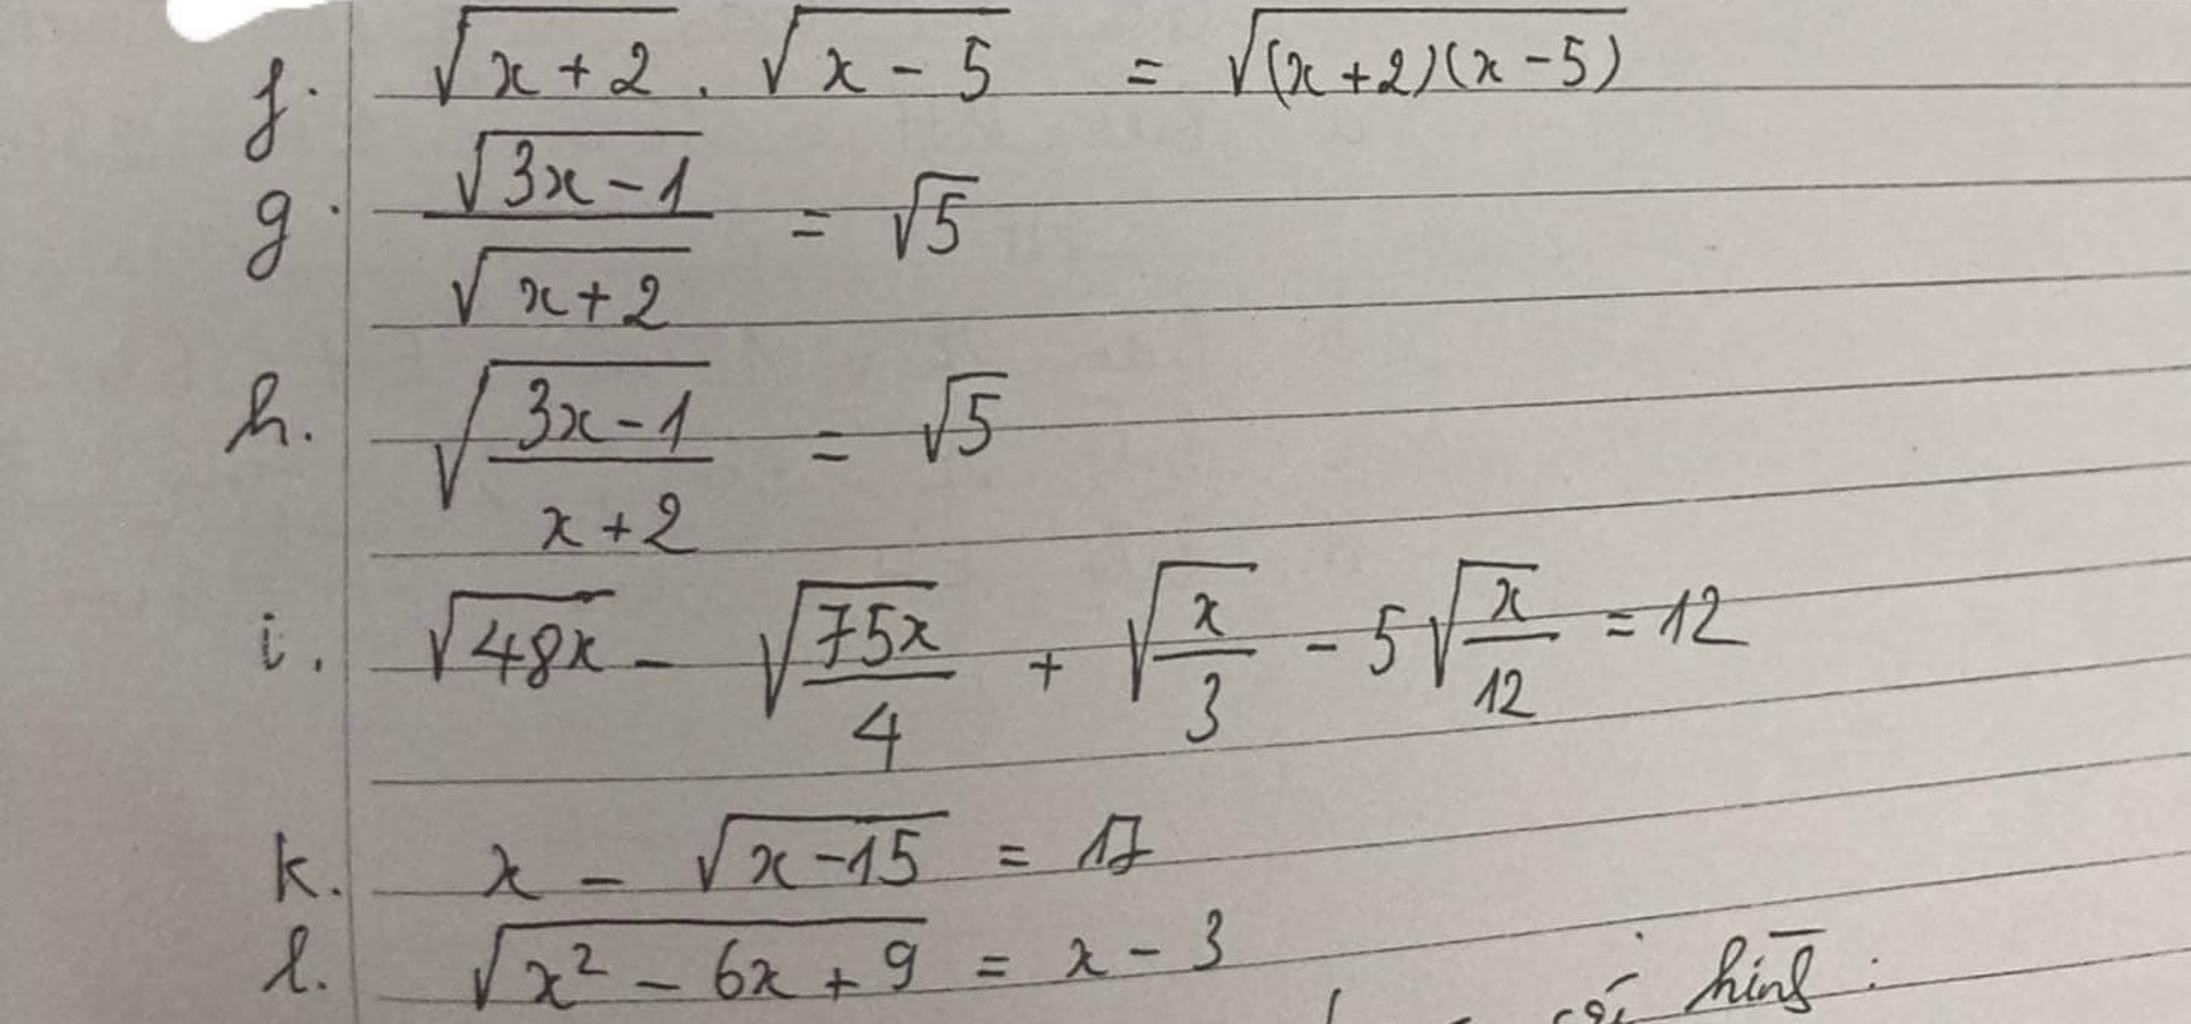 f. √(x+2) . √(x-5) = √((x+2)(x-5))
g. √(3x-1) / √(x+2) = √5
h. √((3x-1)/(x+2)) = √5
i. √(48x) - √(75x/4) + √(x/3) - 5√(x/12) = 12
k. x - √(x-15) = 17
l. √(x² - 6x + 9) = x - 3